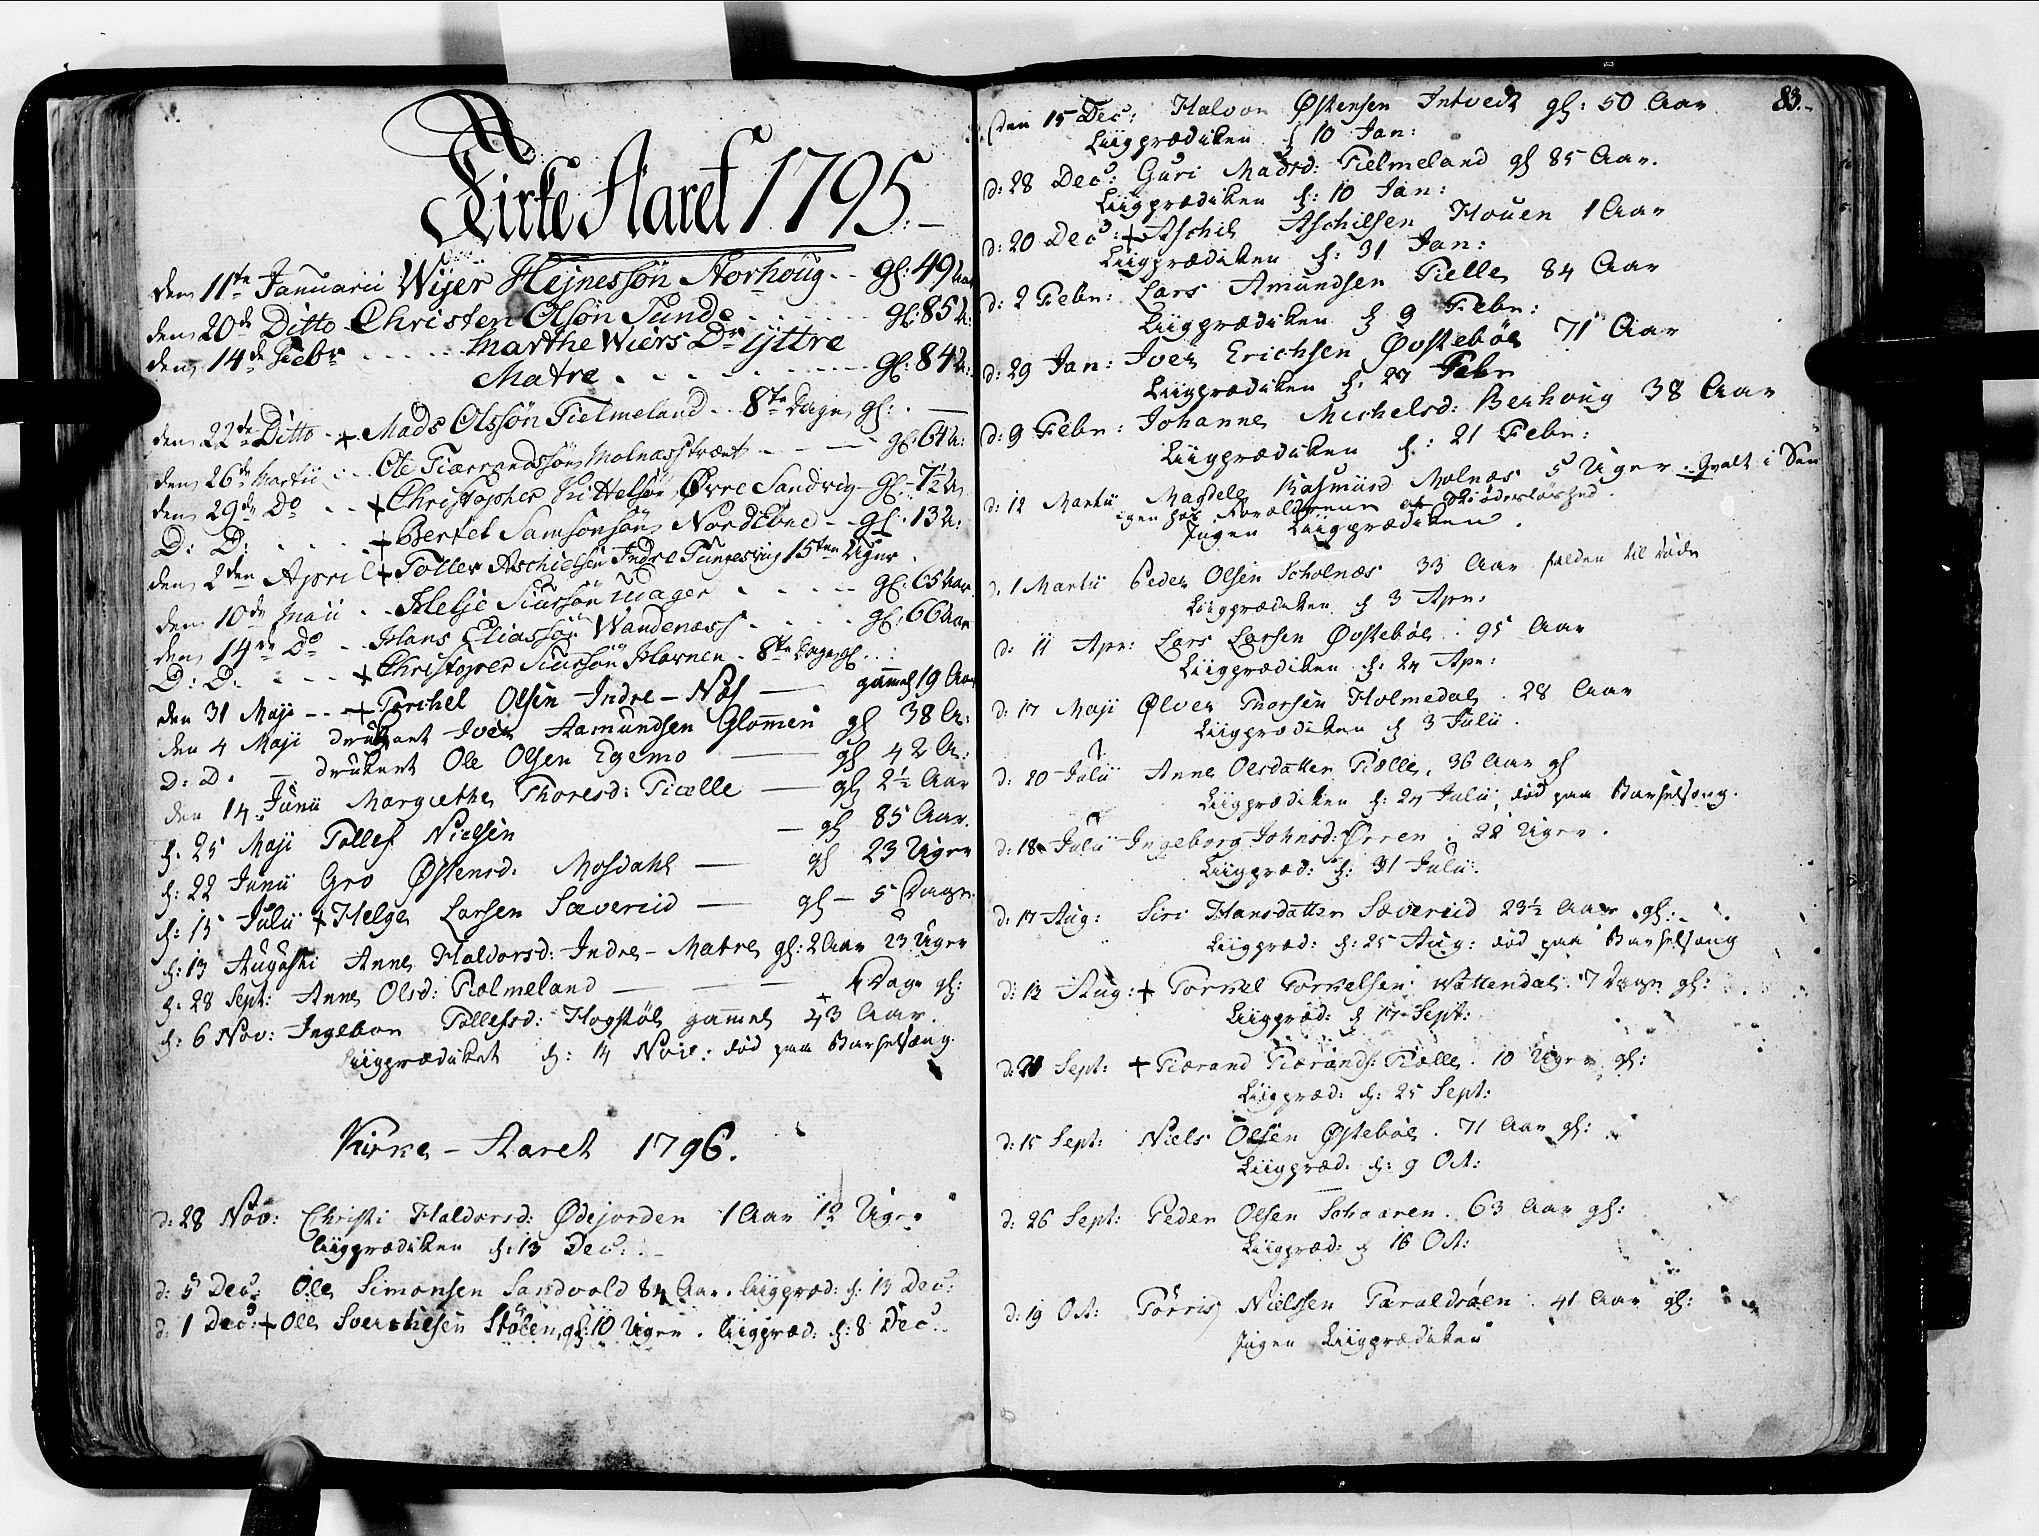 Kirke Aaret 1795.
den 11te Januarii Wijer Hejnessøn Norhoug gl: 49 Aar
den 20de Ditto Christen Olsøn Sunde gl: 85 A:
den 14de Febr Marthe Wiers Dr ÿttre
Matre gl: 84 A:
den 22de Ditto + Mads Olssøn Fielmeland 8te Dage gl:
den 26de Martii Ole Tiærrandssøn Molnæsstræet gl: 64 A:
den 29de Do + Christopher Kittelsøn Øvre Sandvig gl: 7½ A
D: D: + Bertel Samsonsøn Nordtbne gl: 13 A:
den 2den April + Toller Aschielsøn Indre Tungesvig 15ten Uger
den 10de Maii Helje Siursøn Udager gl: 65 Aar
den 14de Do Hans Eliassøn Wandenæss gl: 66 Aar
D: D. + Christopher Siursøn Hovnen 8te Dage gl
den 31 Maji + Torchel Olsen Indre-Næs gamel 19 Aar
den 4 Maji druknet Iver Aamundsen Glomen gl 38 A:
D: D. druknet Ole Olsen Egemo gl 42 A:
den 14 Junii Margrethe Thoresd: Fiælle gl 2½ Aar
d: 25 Maji Tollef Nielsen gl 85 Aar.
d: 22 Junii Gro Østensd. Mosdahl gl 23 Uger
d: 15 Julii + Helge Larsen Sævereid gl 5 Dage.
d: 13 Augusti Anne Haldorsd: Indre-Matre gl: 2 Aar 23 Uger
d: 28 Sept: Anne Olsd: Fiælmeland + 4 Dage gl:
d: 6 Nov: Ingebor Tollefsd: Hogstøl gammel 43 Aar.
Liigprædiket d: 14 Nov: død paa Barselsæng.
Kirke-Aaret 1796.
d: 28 Nov: Christi Haldorsd: Ødejorden 1 Aar 12 Uger
liigprædiken d: 13 Dec:
d: 5 Dec: Ole Simonsen Sandvold 84 Aar. liigpræd: d: 13 Dec:
d: 1 Dec: + Ole Sverchesen Stølen gl: 10 Uger. liigpræd: d: 8 Dec.
83.
den 15 Dec: Halvor Østensen Intvedt gl: 50 Aar
Liigprædiken d 10 Jan:
d: 28 Dec: Guri Madsd: Fielmeland gl 85 Aar.
Liigprædiken d: 10 Jan:
d: 20 Dec: + Aschil Aschilsen Houen 1 Aar
Liigprædiken d: 31 Jan:
d: 2 Febr: Lars Amundsen Fielle 84 Aar
Liigprædiken d 9 Febr:
d: 29 Jan: Iver Erichsen Øvstebøe 71 Aar
Liigprædiken d: 27 Febr
d: 9 Febr: Johanne Michelsd: Berhoug 38 Aar
Liigprædiken d: 21 Febr:
d: 12 Martii Magdele Rasmusd Molnæs 5 Uger. Qvalt i Sen
igen hos Forældrene af Skiødesløshed.
Ingen Liigprædiken.
d. 1 Martii Peder Olsen Scholnæs 33 Aar falden til døde
Liigprædiken d 3 Apr:
d: 11 Apr: Lars Larsen Øvstebøe. 95 Aar
Liigprædiken d: 24 Apr:
d: 17 Maji Ølver Thorsen Holmedal. 28 Aar
Liigprædiken d 3 Julii.
d: 20 Julii Anne Olsdatter Fiælle. 36 Aar gl
Liigprædiken d: 24 Julii, død paa Barselsæng.
d: 18 Julii Ingeborg Johnsd: Ørren. 22 Uger.
Liigpræd: d: 31 Julii.
d: 17 Aug: Siri Hansdatter Sævereid 23½ Aar gl:
Liigpræd: d: 25 Aug: død paa Barselsæng
d: 12 Aug: + Torkel Torkelsen Wattendal 7 Dage gl:
Liigpræd: d 17 Sept:
d: 21 Sept: + Tiærand Tiærands: Fiælle. 10 Uger gl:
Liigpræd: d: 25 Sept:
d: 15 Sept: Niels Olsen Østebøe. 71 Aar gl:
Liigpræd. d: 9 Oct:
d: 26 Sept: Peder Olsen Schaaren. 63 Aar gl:
Liigpræd: d 16 Oct:
d: 19 Oct: Torris Nielssen Taraldsøen. 41 Aar gl:
Ingen Liigprædiken